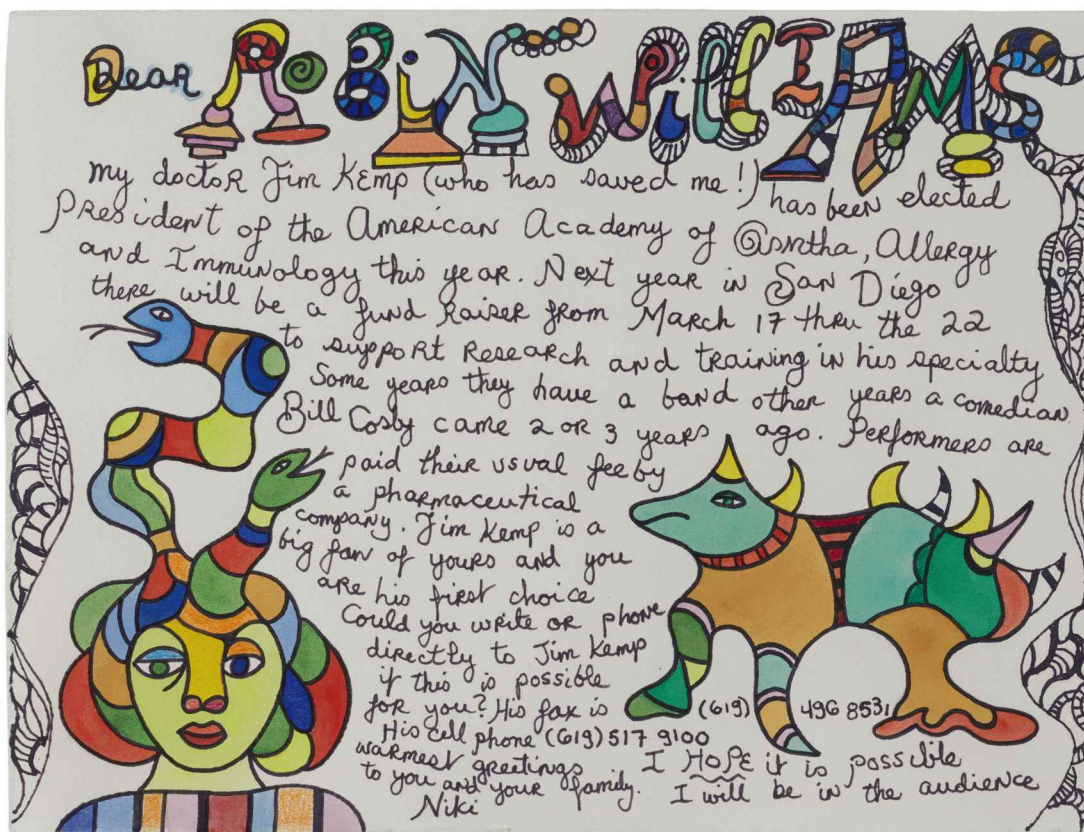 Dear Robin Williams
my doctor Jim Kemp (who has saved me!) has been elected
President of the American Academy of Asmtha, Allergy
and Immunology this year. Next year in San Diego
there will be a fund Raiser from March 17 thru the 22
to support Research and training in his specialty
Some years they have a band other years a comedian
Bill Cosby came 2 or 3 years ago. Performers are
paid their usual fee by
a pharmaceutical
company. Jim Kemp is a
big fan of yours and you
are his first choice
Could you write or phone
directly to Jim Kemp
if this is possible
for you? His fax is (619) 496 8531
His cell phone (619) 517 9100
warmest greetings
to you and your family.
Niki
I HOPE it is possible
I will be in the audience